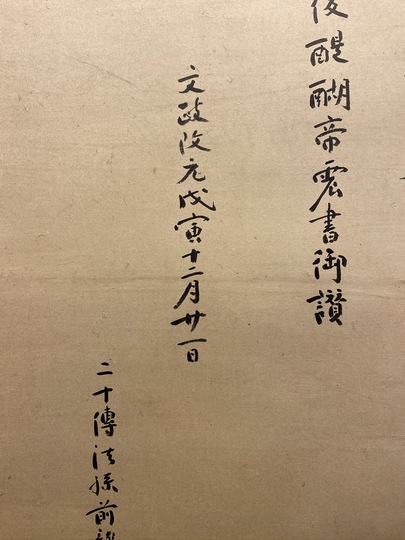 後醍醐帝震書御讃
文政改元戊寅十二月廿一日
二十傳法孫前